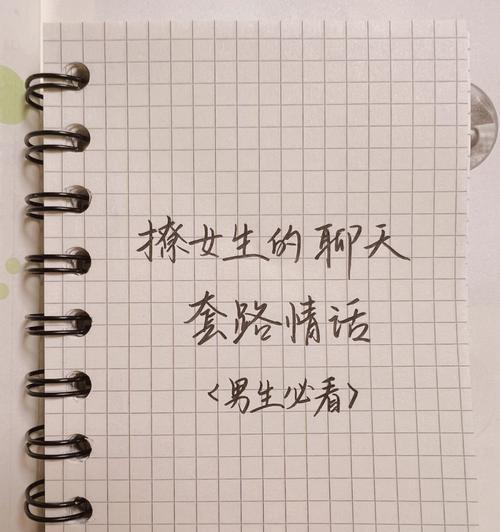 撩女生的聊天
套路情话
<男生必看>